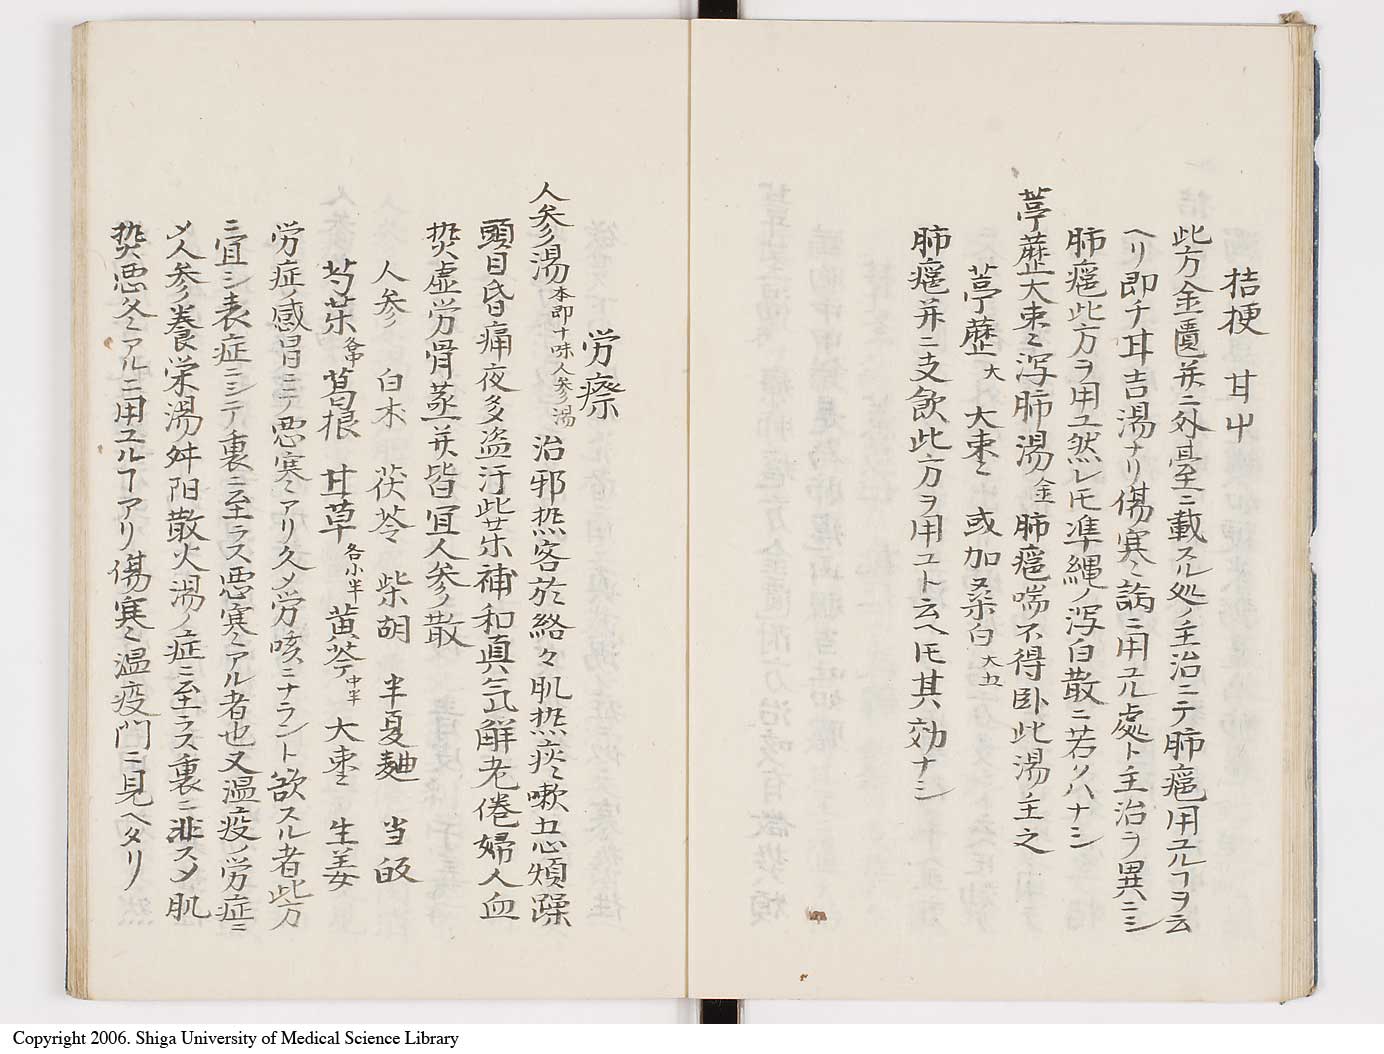 桔梗 甘屮
此方金匱并ニ外臺ニ載スル処ノ主治ニテ肺癰用ユルヿヲ云
ヘリ即チ甘吉湯ナリ傷寒論ニ用ユル處ト主治ヲ異ニシ
肺癰此方ヲ用ユ然レ𪜈準縄ノ瀉白散ニ若クハナシ
葶藶大枣瀉肺湯金 肺癰喘不得卧此湯主之
葶藶大 大枣 或加桑白大五
肺癰并ニ支飲此方ヲ用ユト云ヘ𪜈其効ナシ
労瘵
人参湯本即十味人参湯 治邪热客於絡々肌热痰嗽五心煩躁
頭目昏痛夜多盗汗此茱補和真気解老倦婦人血
热虚労骨蒸并皆宜人参散
人参 白朮 茯苓 柴胡 半夏麯 当皈
芍茱各中 葛根 甘草各小半 黄芩中半 大枣 生姜
労症ノ感冒ニテ悪寒アリ久メ労咳ニナラント欲スル者此方
ニ宜シ表症ニシテ裏ニ至ラス悪寒アル者也又温疫ノ労症ニ
メ人参養栄湯舛阳散火湯ノ症ニ至ラス裏ニ非スメ肌
热悪冬アルニ用ユルヿアリ傷寒温疫門ニ見ヘタリ
Copyright 2006. Shiga University of Medical Science Library